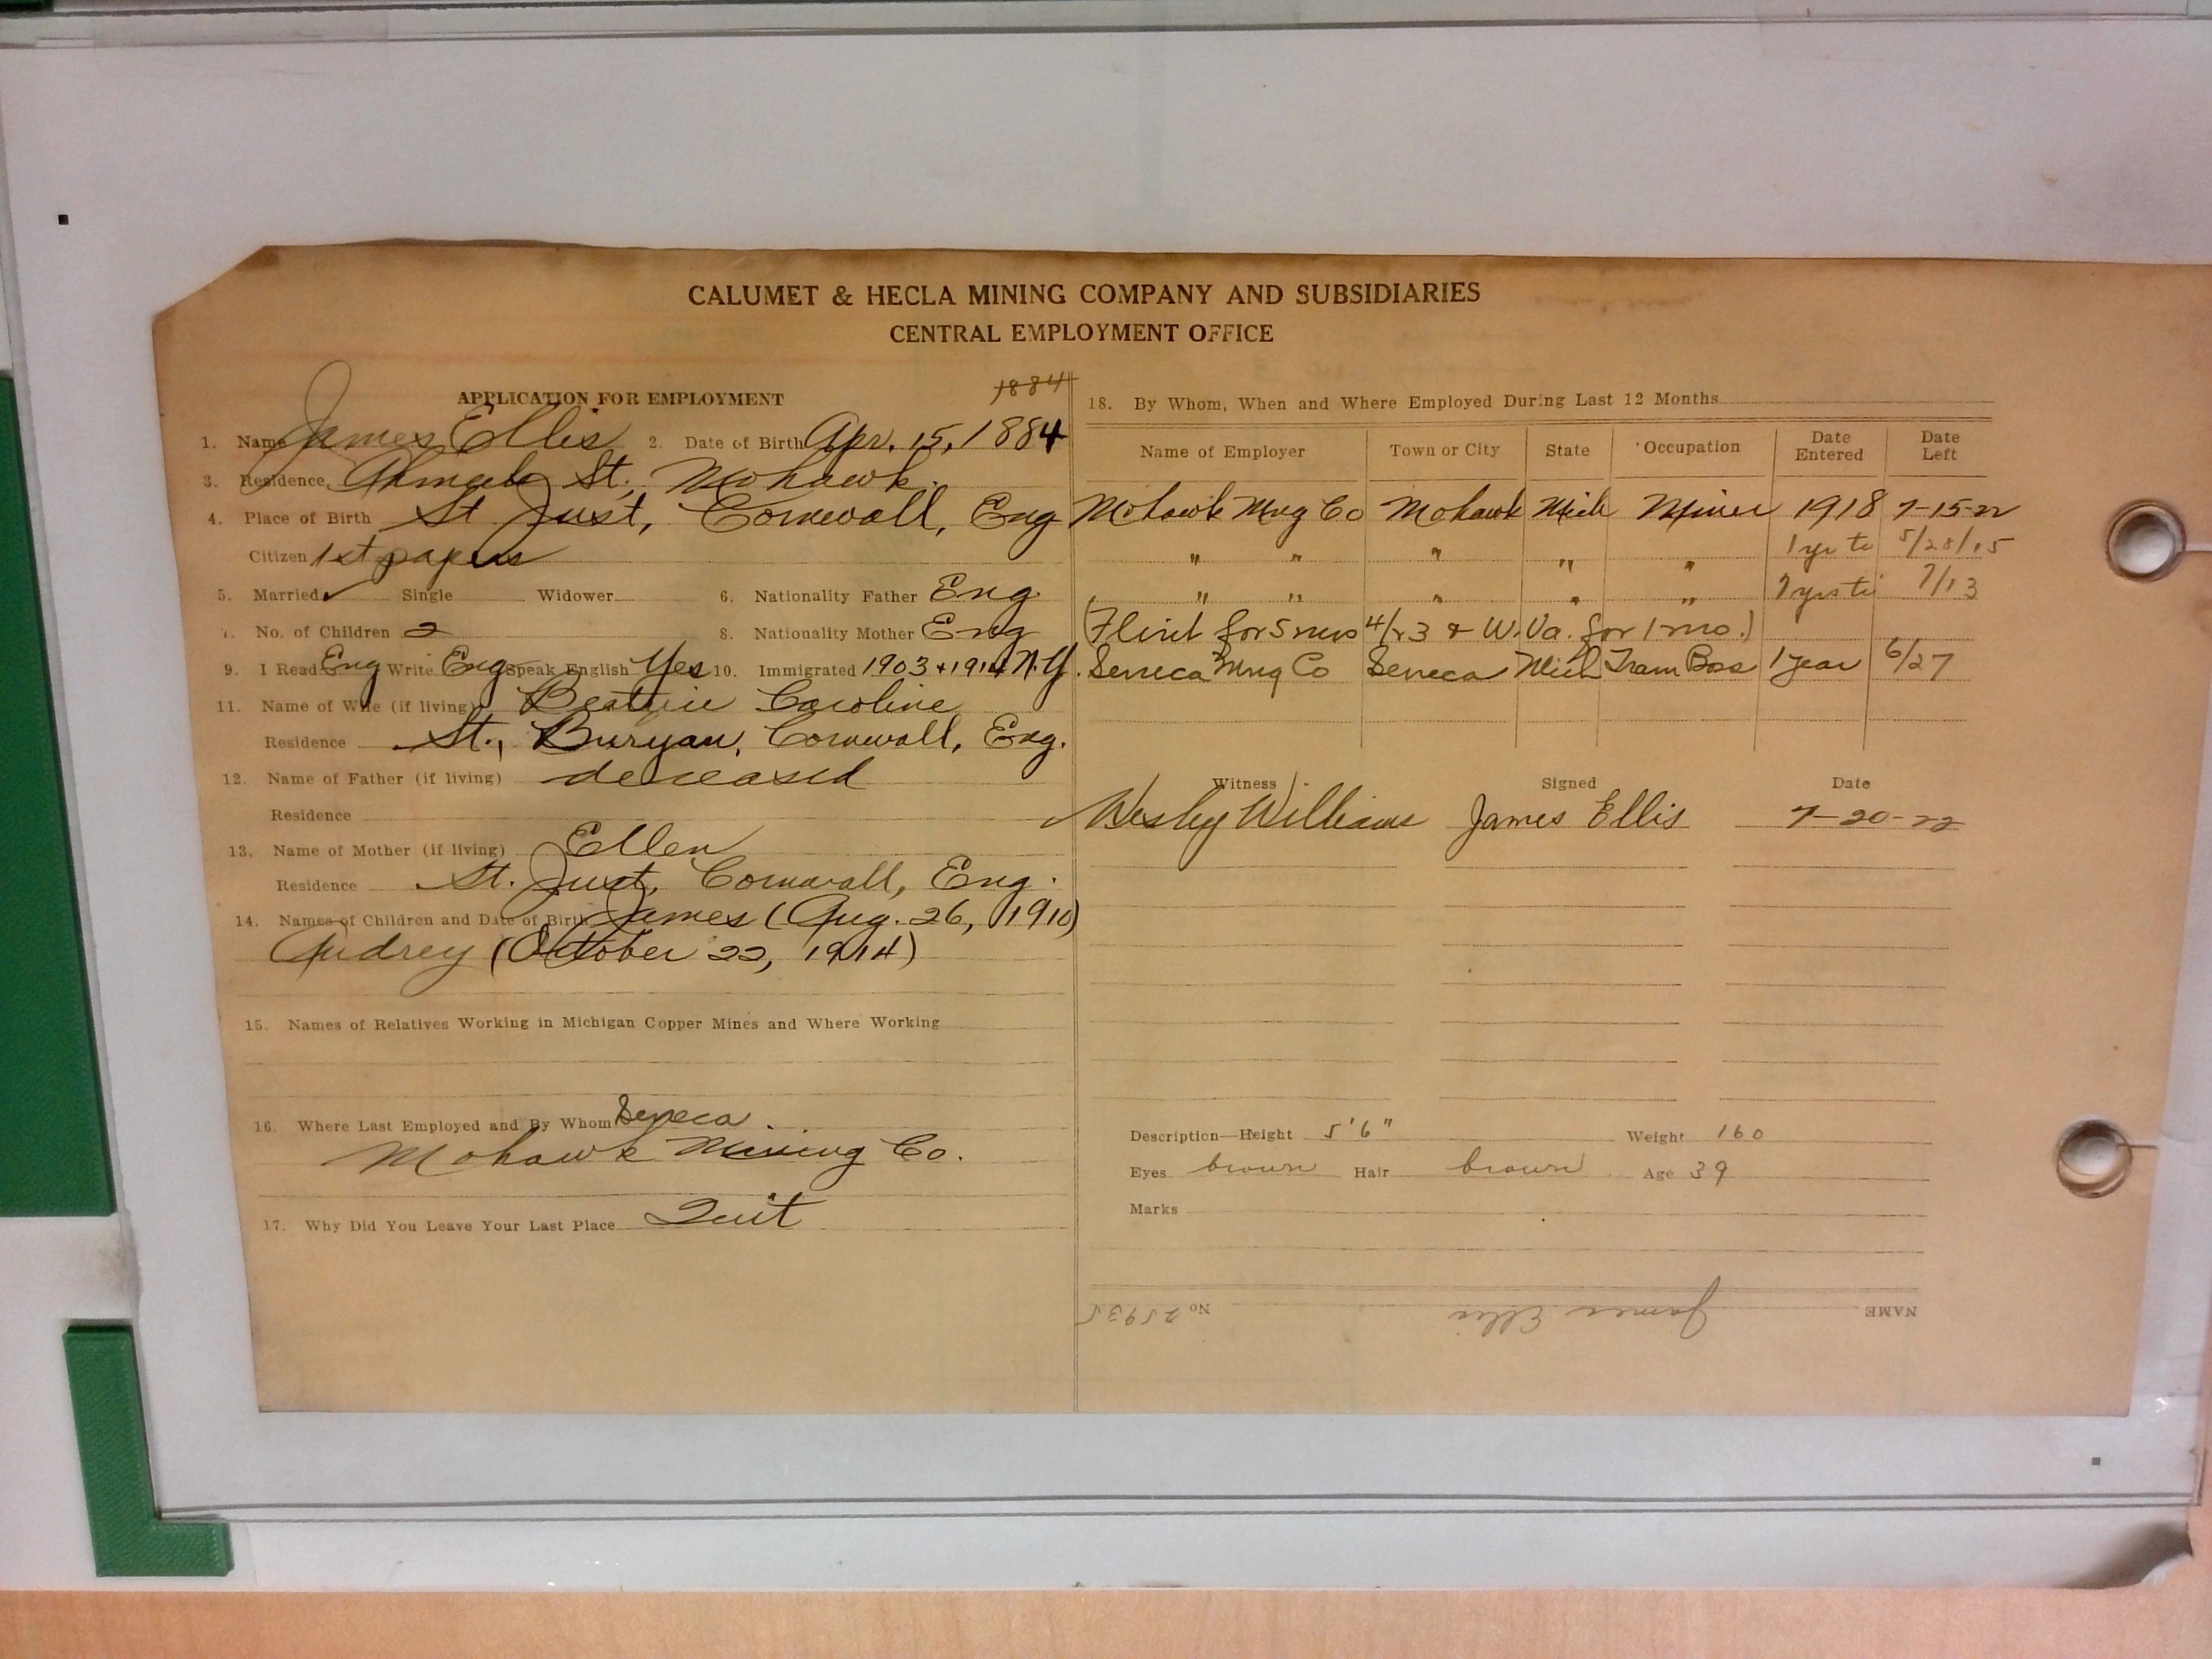 CALUMET & HECLA MINING COMPANY AND SUBSIDIARIES
CENTRAL EMPLOYMENT OFFICE
APPLICATION FOR EMPLOYMENT
1884
1. Name James Ellis 2. Date of Birth Apr. 15, 1884
3. Residence St. Mohawk.
4. Place of Birth St Just, Cornwall, Eng
Citizen 1st papers
5. Married ✓ Single Widower 6. Nationality Father Eng.
7. No. of Children 2 8. Nationality Mother Eng
9. I Read Eng Write Eng Speak English Yes 10. Immigrated 1903 + 1914 N.Y.
11. Name of Wife (if living) Beatrice Caroline
Residence St., Buryan, Cornwall, Eng.
12. Name of Father (if living) deceased
Residence
13. Name of Mother (if living) Ellen
Residence St. Just, Cornwall, Eng.
14. Names of Children and Date of Birth James (Aug. 26, 1910)
Audrey (October 22, 1914)
15. Names of Relatives Working in Michigan Copper Mines and Where Working
16. Where Last Employed and By Whom Seneca
Mohawk Mining Co.
17. Why Did You Leave Your Last Place Quit
18. By Whom, When and Where Employed During Last 12 Months
Name of Employer Town or City State Occupation Date Entered Date Left
Mohawk Mng Co Mohawk Mich Miner 1918 7-15-22
" " " " " 1 yr to 5/28/15
" " " " " yrs to 7/13
(Flint for 5 mos 4/23 & W. Va. for 1 mo.)
Seneca Mng Co Seneca Mich Tram Boss 1 year 6/27
Witness Signed Date
Wesley Williams James Ellis 7-20-22
Description—Height 5'6" Weight 160
Eyes brown Hair brown Age 39
Marks
NAME James Ellis No 25935